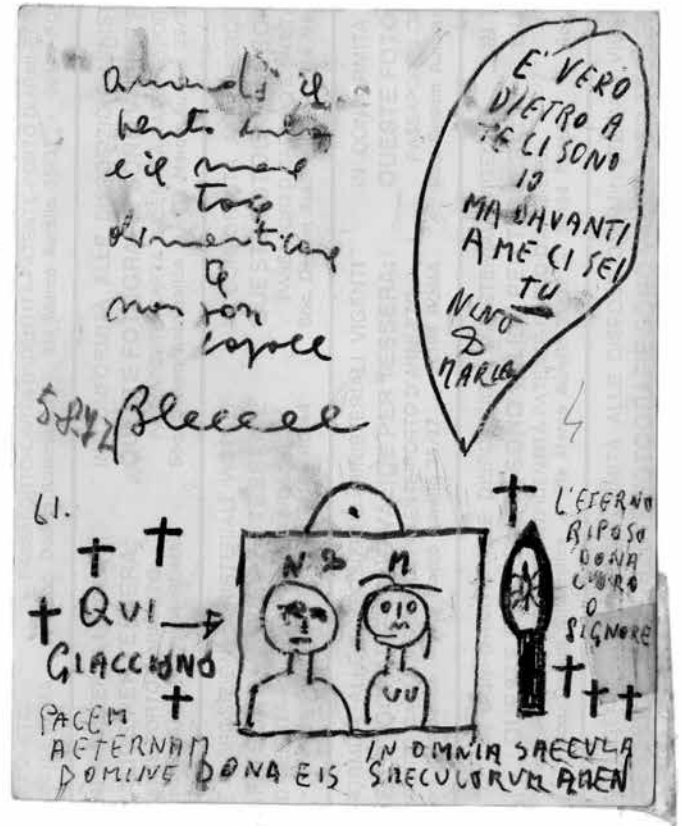 il
vento
e il mare
tace
dimenticare
te
non son
capace
Bleeeee
E' VERO
DIETRO A
TE CI SONO
IO
MA DAVANTI
A ME CI SEI
TU
NINO
&
MARIA
61.
QUI
GIACCIONO
N & M
L'ETERNO
RIPOSO
DONA
LORO
O
SIGNORE
PACEM
AETERNAM
DOMINE DONA EIS
IN OMNIA SAECULA
SAECULORUM AMEN